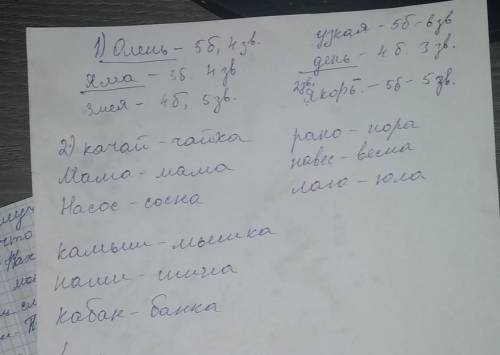 1) Олень - 5б, 4 зв.
Яма - 3б. 4 зв
Змея - 4б, 5 зв.
узкая - 5б - 6 зв
день - 4 б. 3 зв.
Якорь - 5б - 5 зв.
2) качай - чайка
Мама - мама
Насос - сосна
рано - нора
навес - весна
лаю - юла
камыш - мышка
наши - шина
кабан - банка
что